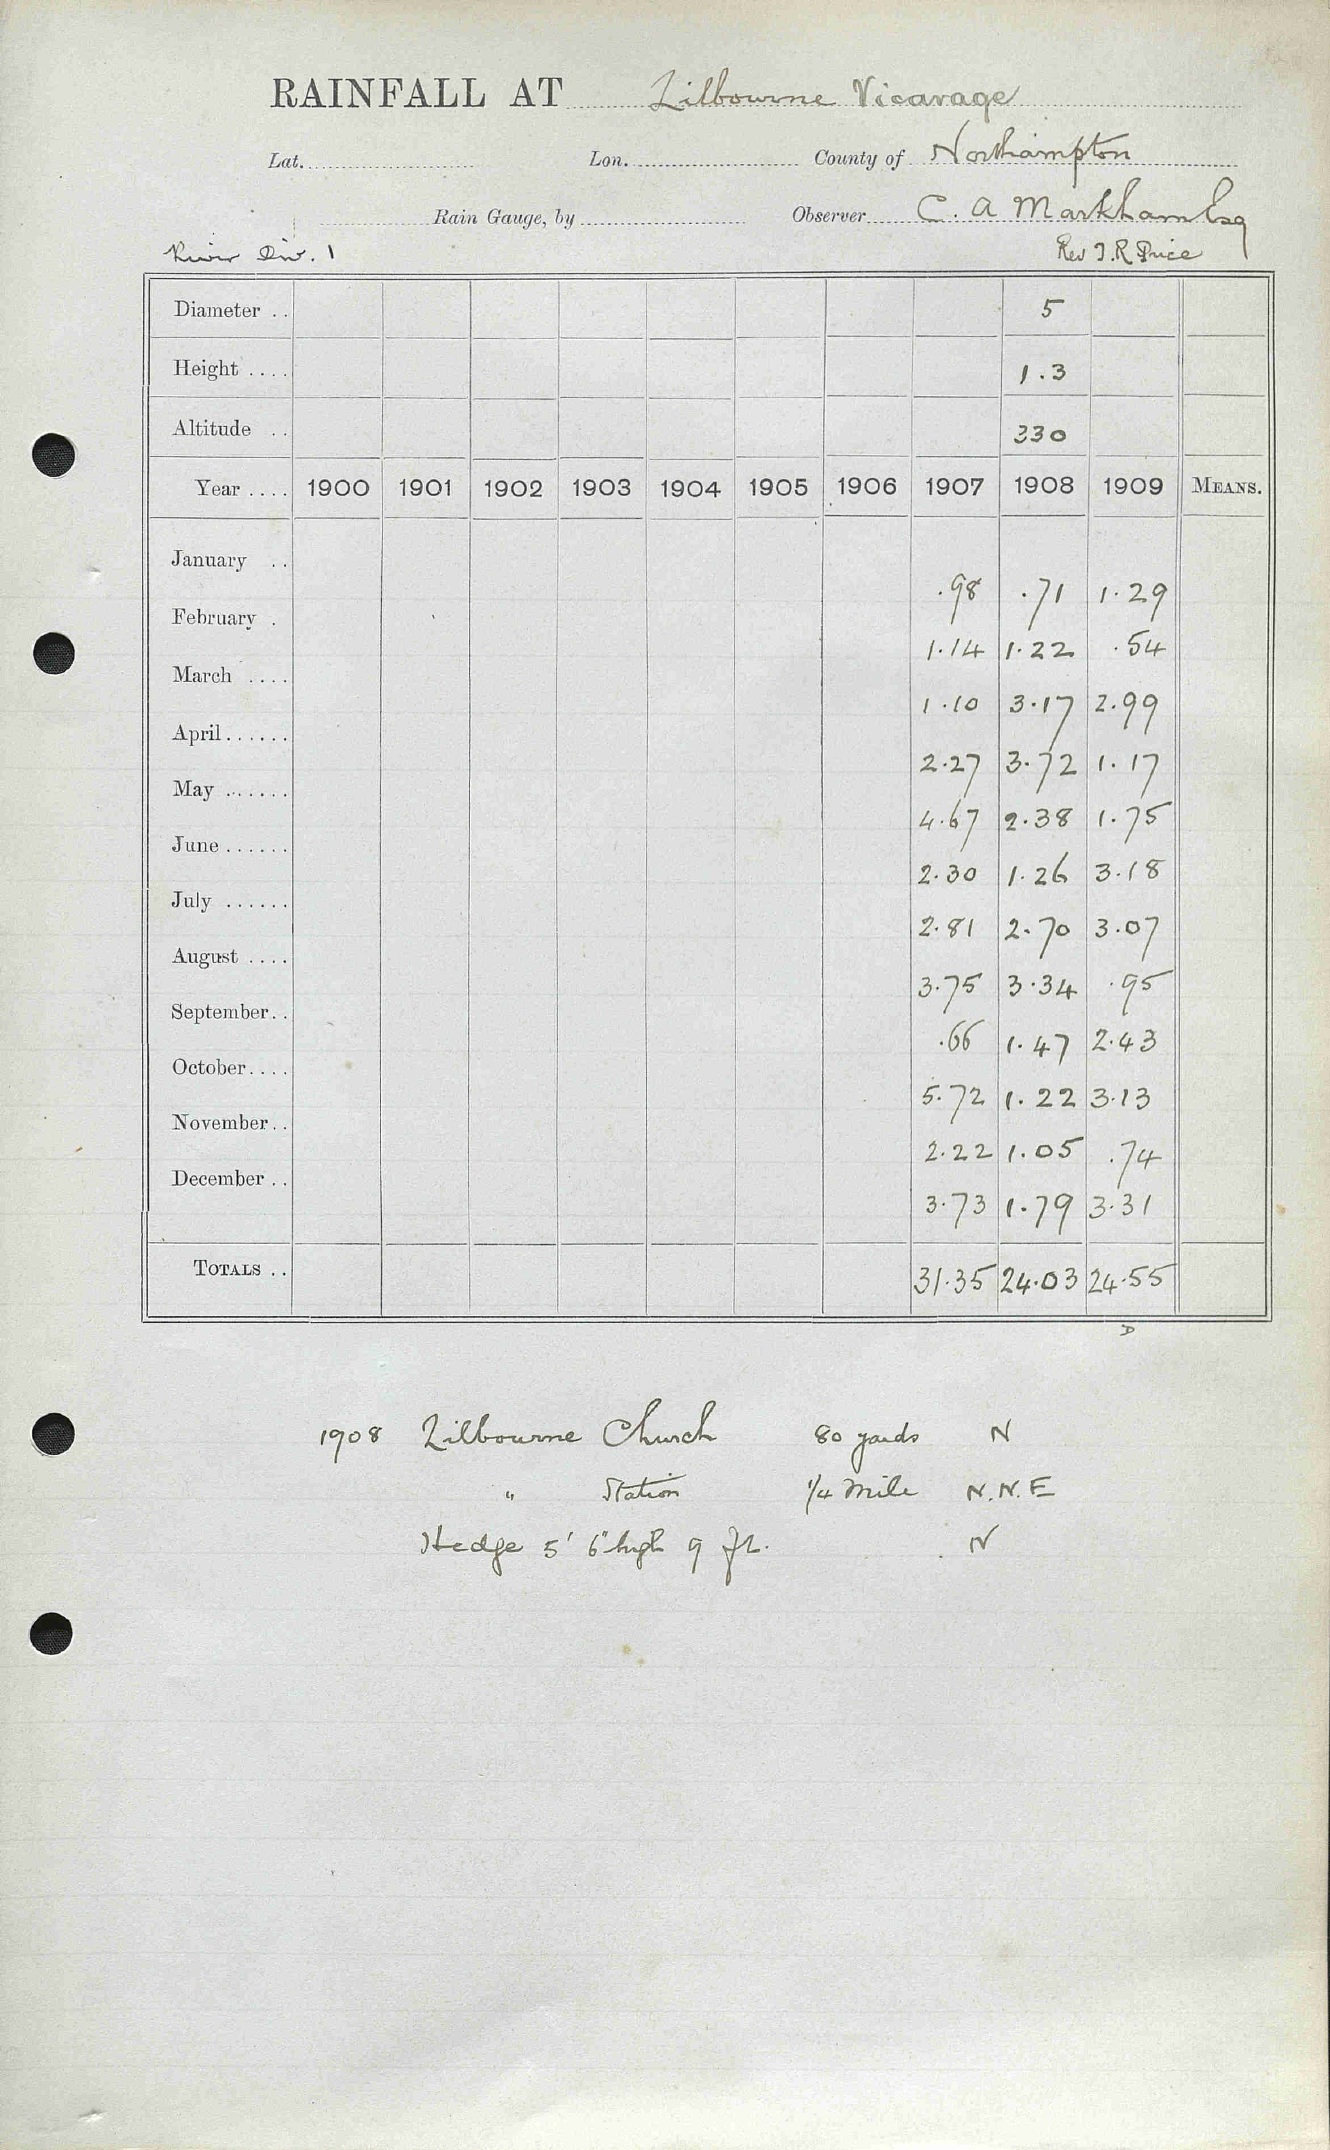 RAINFALL AT Lilbourne Vicarage
Lat. Lon. County of Northampton
Rain Gauge, by Observer C. A Markham Esq
River Div. 1 Rev T. R. Price
Diameter . . 5
Height . . . . 1.3
Altitude . . 330
Year . . . . 1900 1901 1902 1903 1904 1905 1906 1907 1908 1909 MEANS.
January . . .98 .71 1.29
February . 1.14 1.22 .54
March . . . . 1.10 3.17 2.99
April . . . . . . 2.27 3.72 1.17
May . . . . . . 4.67 2.38 1.75
June . . . . . . 2.30 1.26 3.18
July . . . . . . 2.81 2.70 3.07
August . . . . 3.75 3.34 .95
September . . .66 1.47 2.43
October . . . . 5.72 1.22 3.13
November . . 2.22 1.05 .74
December . . 3.73 1.79 3.31
TOTALS . . 31.35 24.03 24.55
D
1908 Lilbourne Church 80 yards N
" Station 1/4 Mile N.N.E
Hedge 5' 6" high 9 ft. N